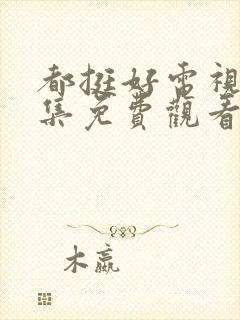 都挺好電視
集免費觀看
木嬴